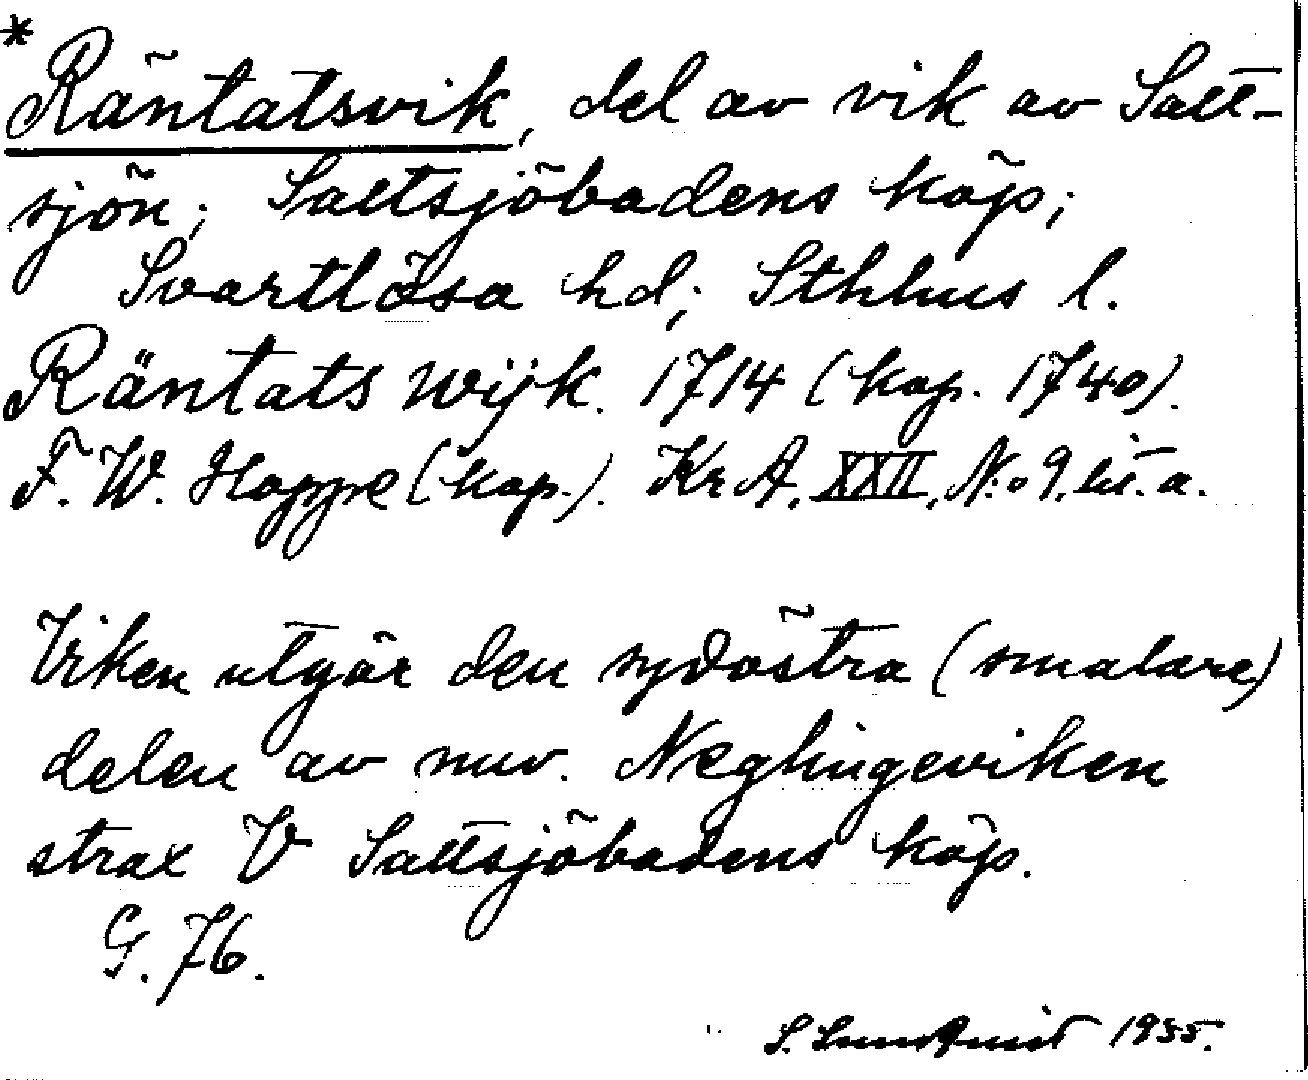 *
Räntatsvik, del av vik av Salt-
sjön; Saltsjöbadens köp;
Svartlösa hd; Sthlms l.
Räntats wijk. 1714 (kop. 1740).
F. W. Hoppe (kop.). Kr A. XXII, N:o 9. lit. a.
Viken utgör den sydöstra (smalare)
delen av nuv. Neglingeviken
strax V Saltsjöbadens köp.
G. 76.
S. Lundquist 1935.